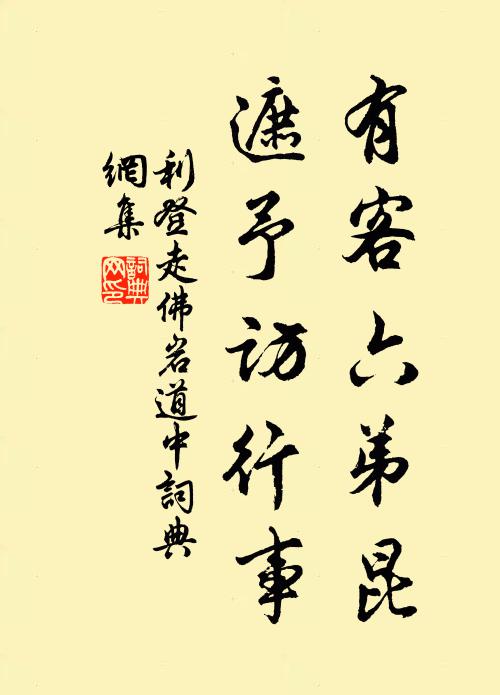 有客六弟昆
遮予訪行事
利登走佛岩道中詞典
網集
詞典網印